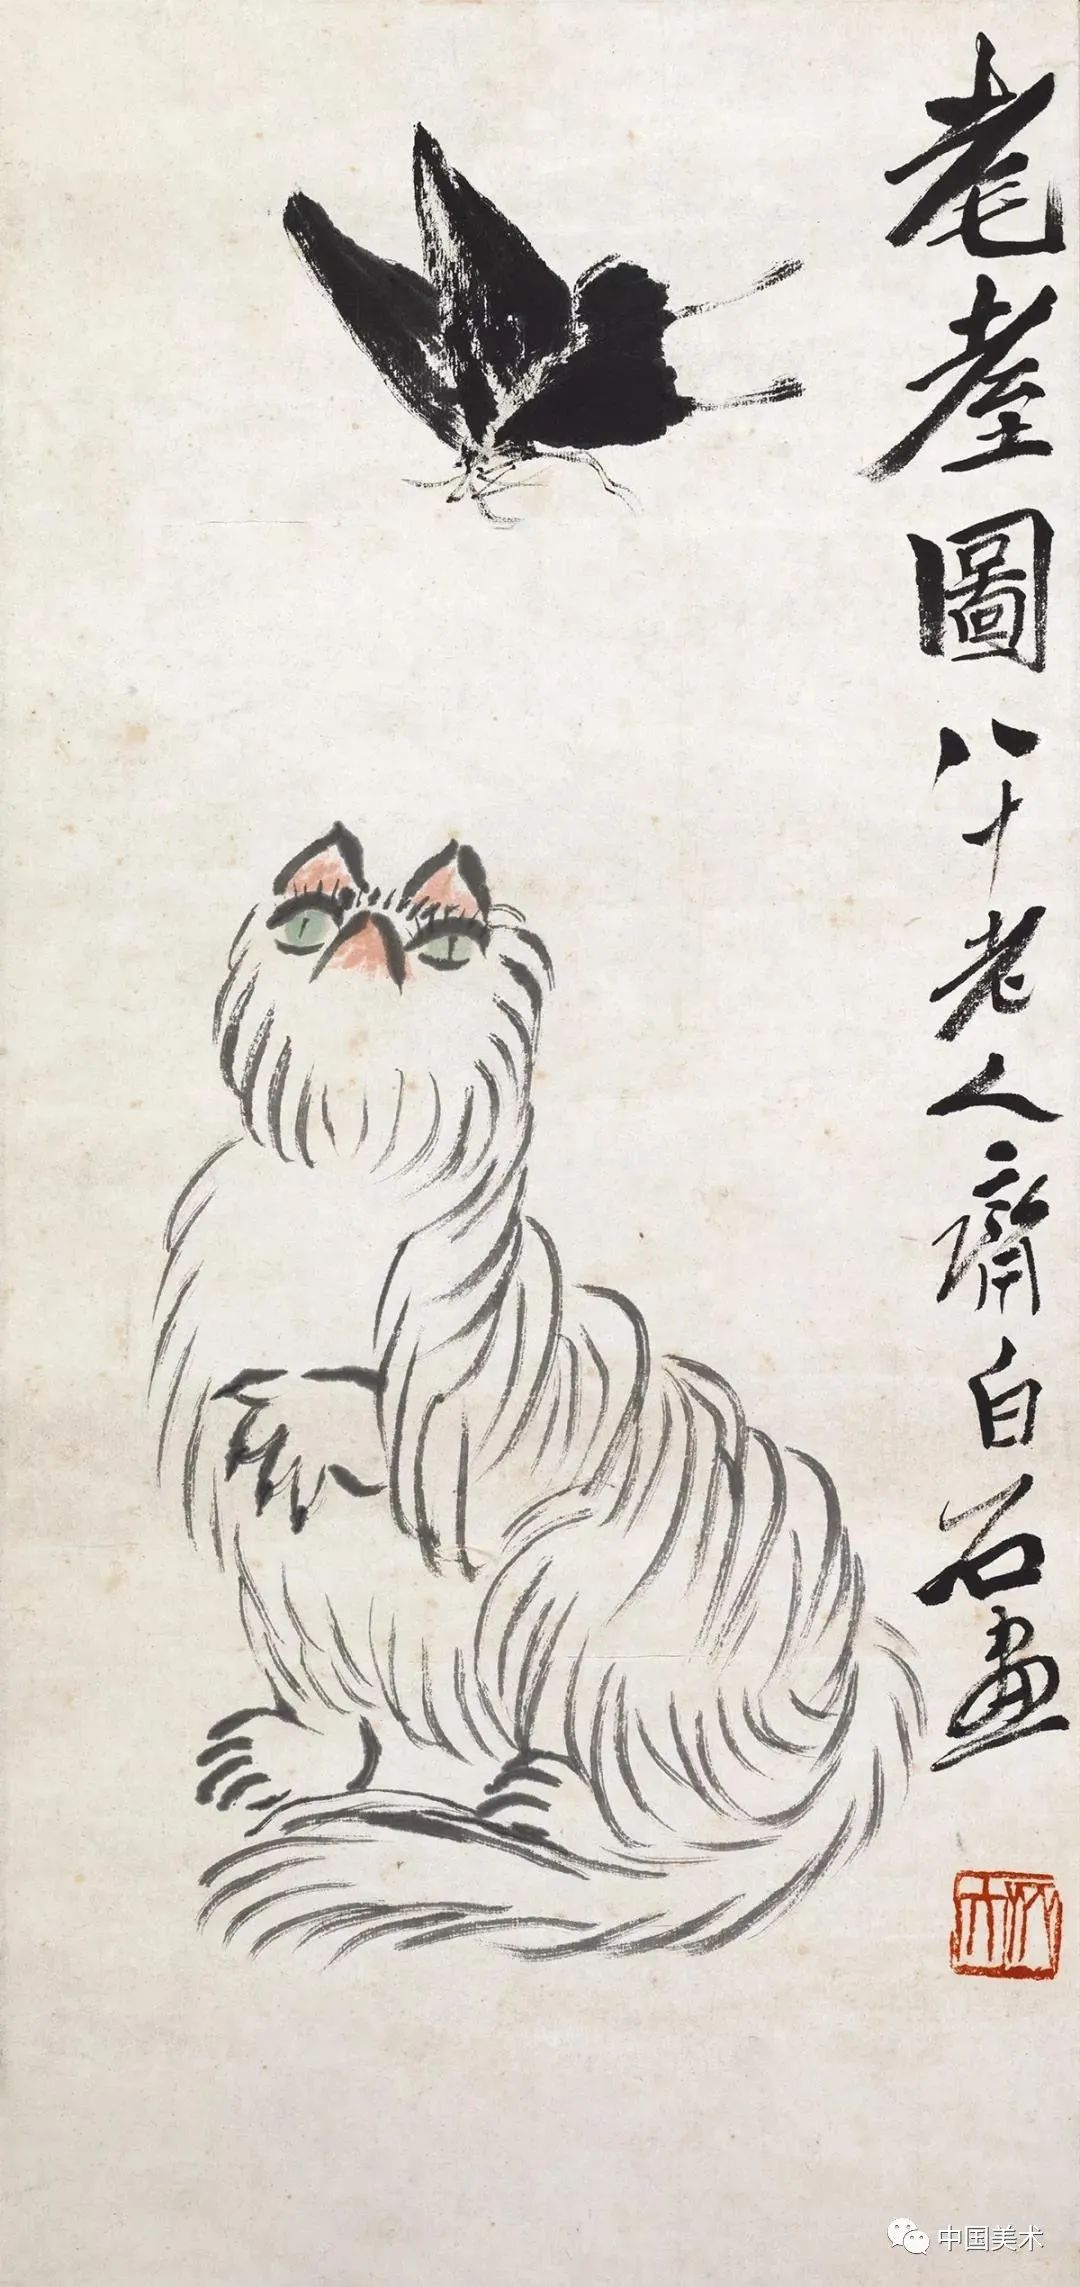 耄耋圖八十老人齊白石畫
中国美术